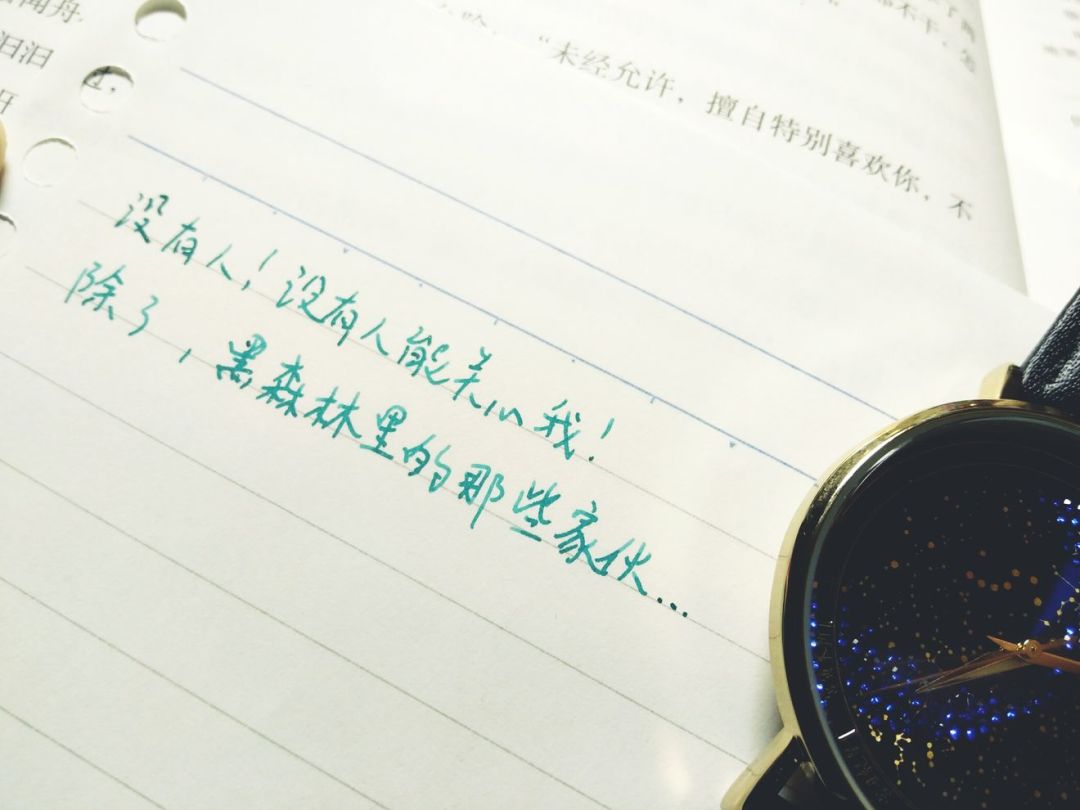 闻舟
“未经允许，擅自特别喜欢你，不
没有人！没有人能关心我！
除了，黑森林里的那些家伙...